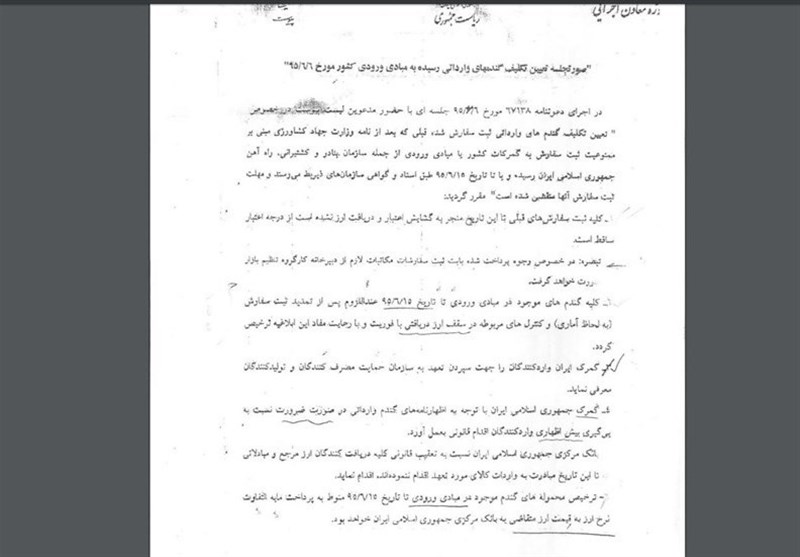 معاون اجرایی
ریاست جمهوری
پیوست
"صورتجلسه تعیین تکلیف گندمهای وارداتی رسیده به مبادی ورودی کشور مورخ ۹۵/۶/۶"
در اجرای دعوتنامه ۶۷۱۳۸ مورخ ۹۵/۶/۶ جلسه ای با حضور مدعوین لیست پیوست در خصوص
" تعیین تکلیف گندم های وارداتی ثبت سفارش شده قبلی که بعد از نامه وزارت جهاد کشاورزی مبنی بر
ممنوعیت ثبت سفارش به گمرکات کشور یا مبادی ورودی از جمله سازمان بنادر و کشتیرانی، راه آهن
جمهوری اسلامی ایران رسیده و یا تا تاریخ ۹۵/۶/۱۵ طبق اسناد و گواهی سازمان‌های ذیربط می‌رسند و مهلت
ثبت سفارش آنها منقضی شده است" مقرر گردید:
کلیه ثبت سفارش‌های قبلی تا این تاریخ منجر به گشایش اعتبار و دریافت ارز نشده است از درجه اعتبار
ساقط است.
تبصره: در خصوص وجوه پرداخت شده بابت ثبت سفارشات مکاتبات لازم از دبیرخانه کارگروه تنظیم بازار
صورت خواهد گرفت.
کلیه گندم های موجود در مبادی ورودی تا تاریخ ۹۵/۶/۱۵ عنداللزوم پس از تمدید ثبت سفارش
(به لحاظ آماری) و کنترل های مربوطه در سقف ارز دریافتی با فوریت و با رعایت مفاد این ابلاغیه ترخیص
گردد.
گمرک ایران واردکنندگان را جهت سپردن تعهد به سازمان حمایت مصرف کنندگان و تولیدکنندگان
معرفی نماید.
۴- گمرک جمهوری اسلامی ایران با توجه به اظهارنامه‌های گندم وارداتی در صورت ضرورت نسبت به
پی‌گیری بیش اظهاری واردکنندگان اقدام قانونی بعمل آورد.
بانک مرکزی جمهوری اسلامی ایران نسبت به تعقیب قانونی کلیه دریافت کنندگان ارز مرجع و مبادلاتی
تا این تاریخ مبادرت به واردات کالای مورد تعهد اقدام ننموده‌اند، اقدام نماید.
ترخیص محموله های گندم موجود در مبادی ورودی تا تاریخ ۹۵/۶/۱۵ منوط به پرداخت مابه التفاوت
نرخ ارز به قیمت ارز متقاضی به بانک مرکزی جمهوری اسلامی ایران خواهد بود.